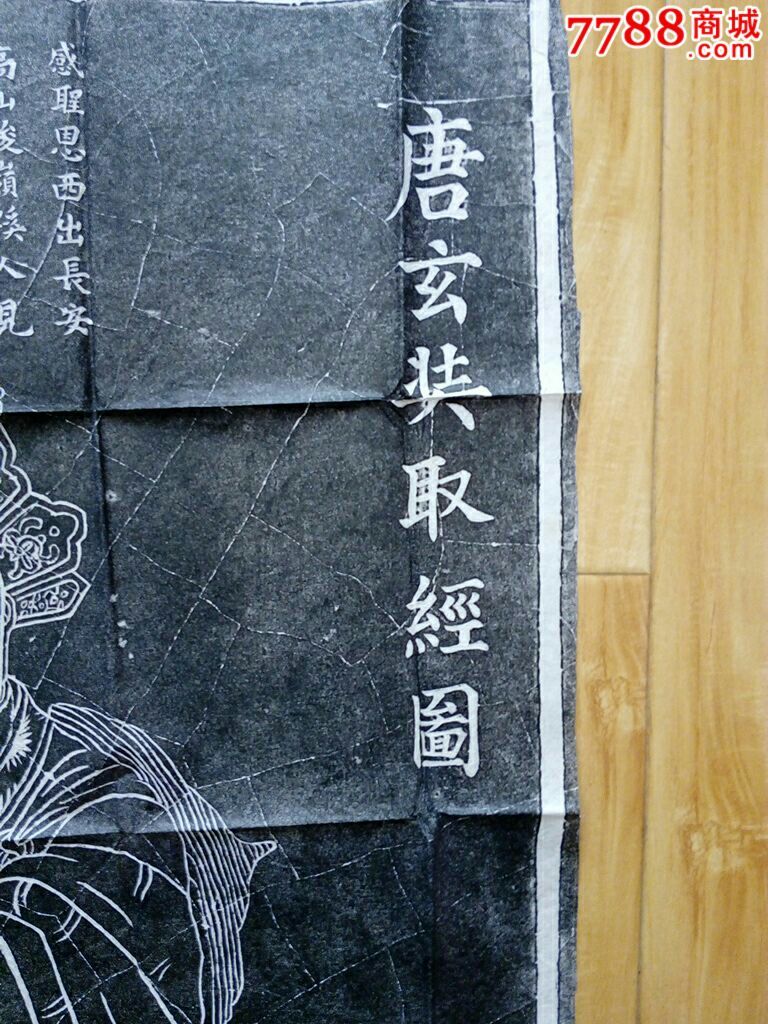 7788商城
.com
唐玄奘取經圖
感聖恩西出長安
高山峻嶺溪人見